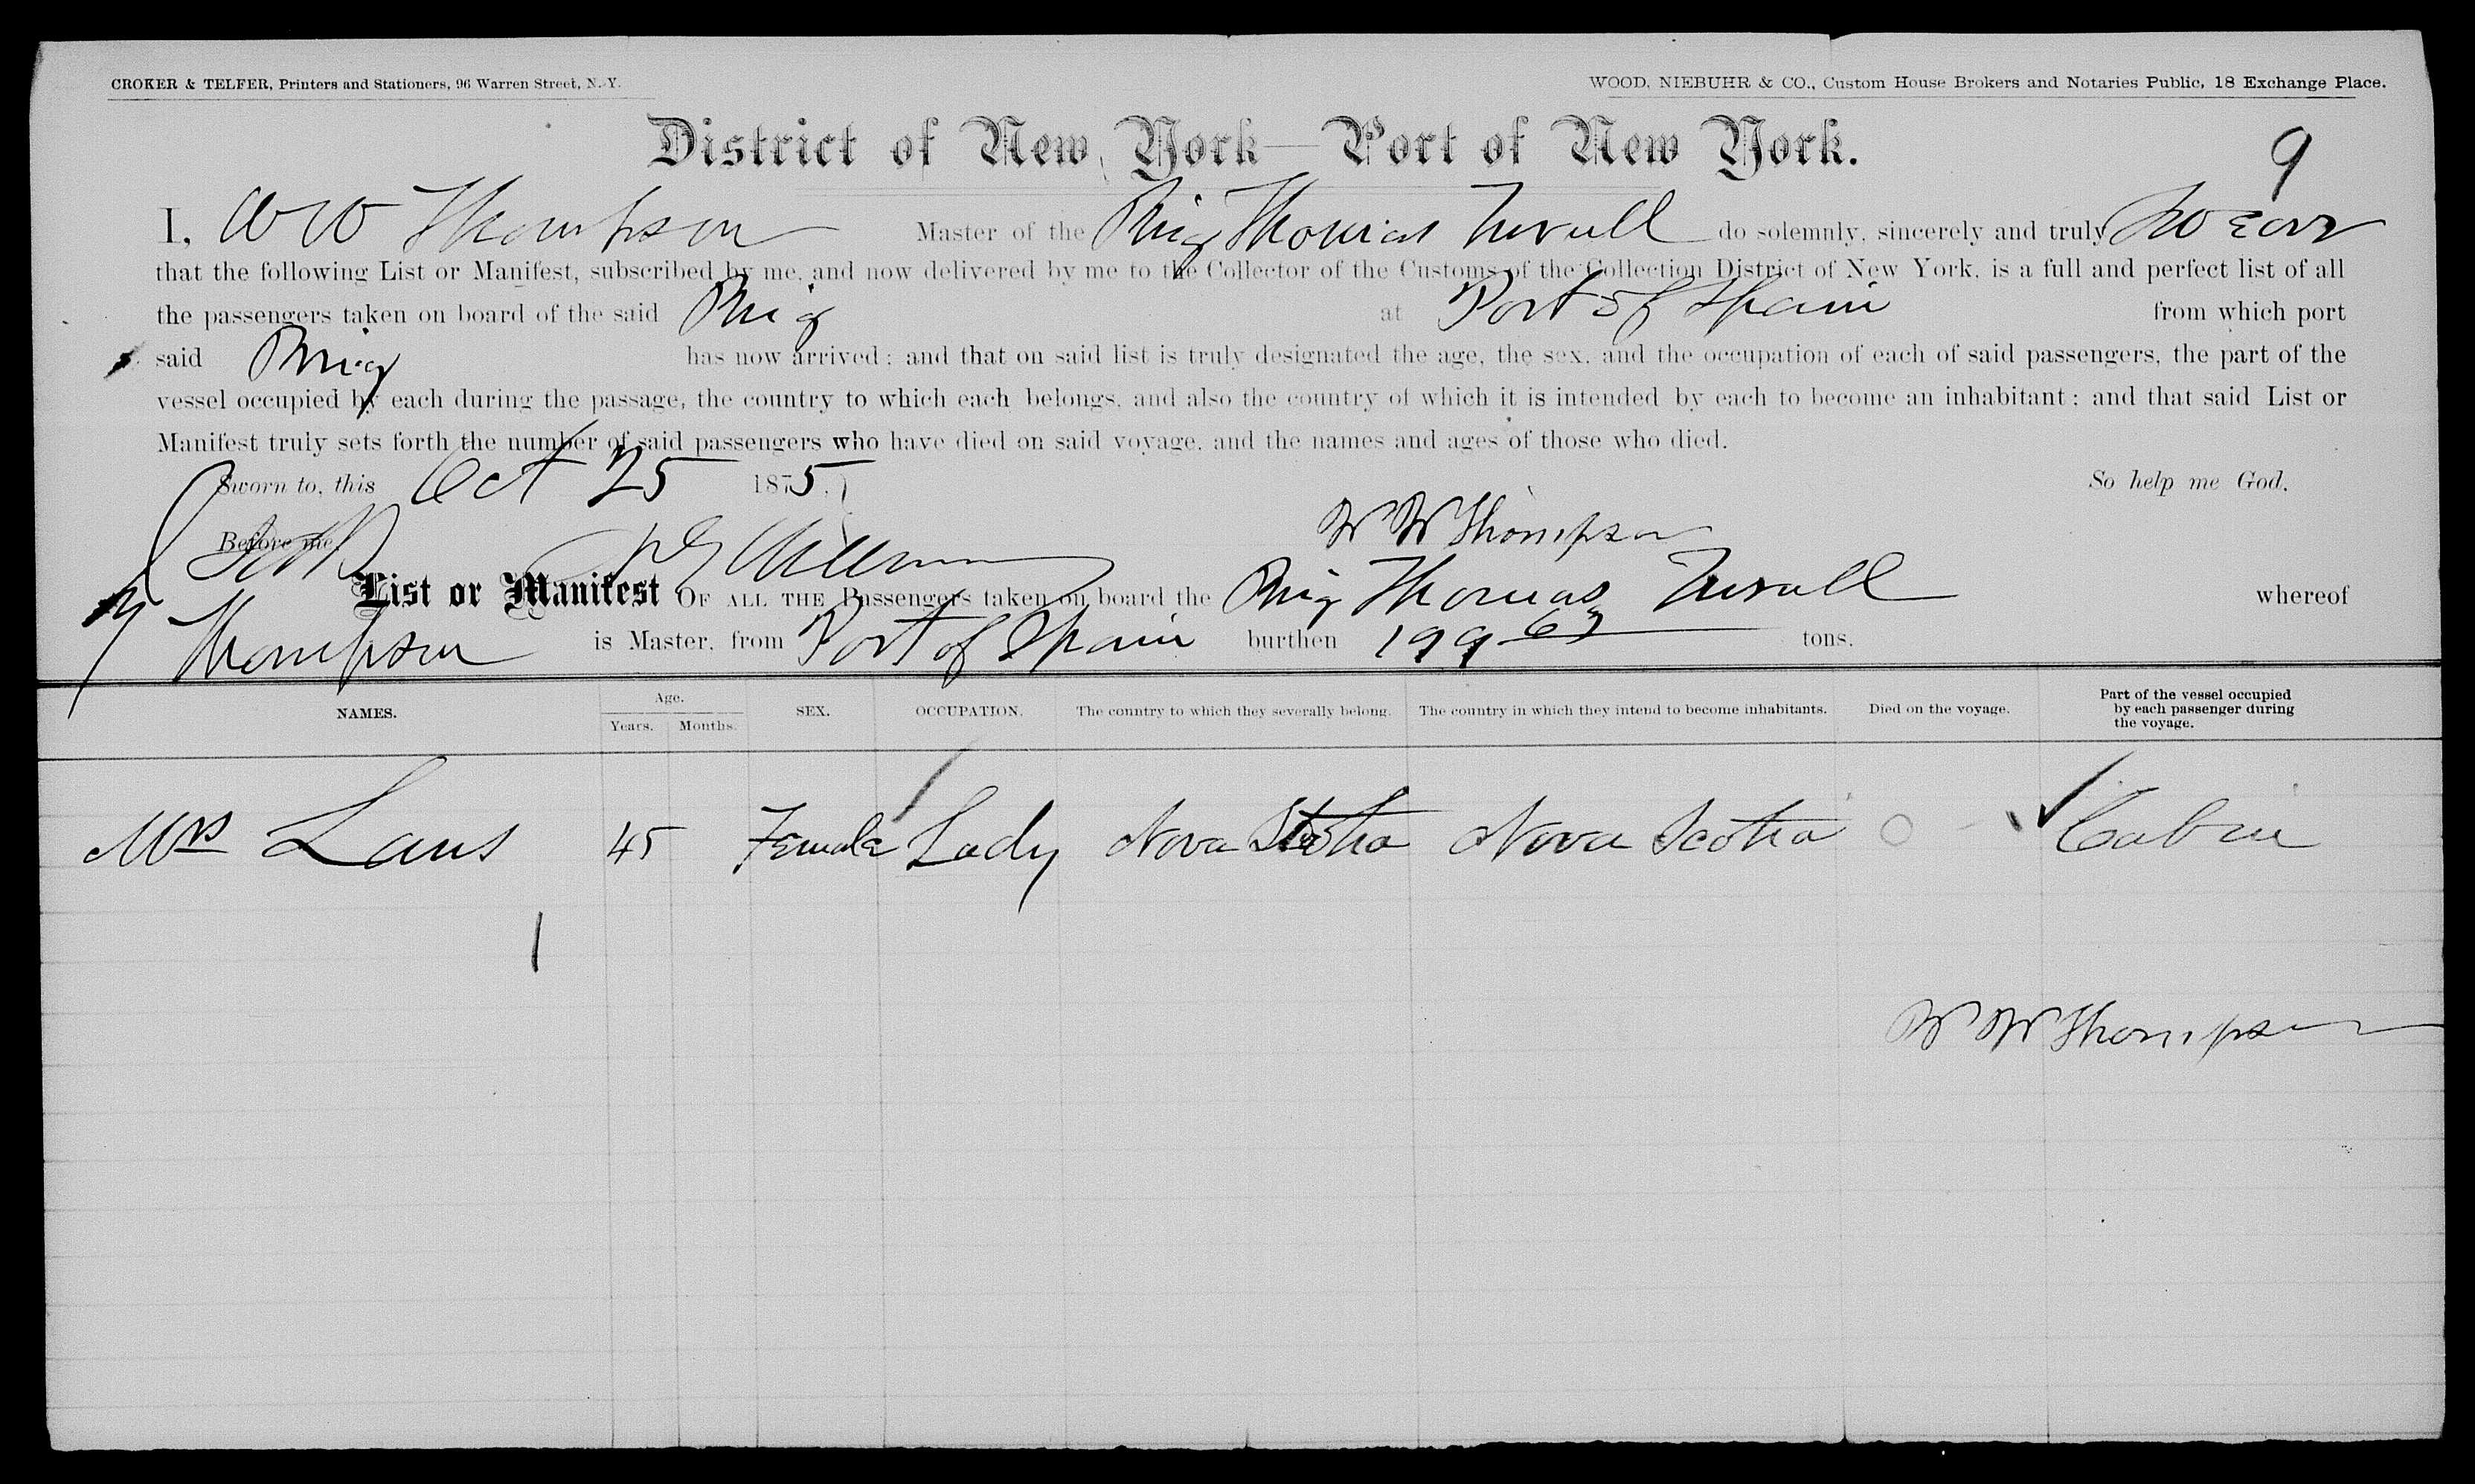 CROKER & TELFER, Printers and Stationers, 96 Warren Street, N. Y.
WOOD, NIEBUHR & CO., Custom House Brokers and Notaries Public, 18 Exchange Place.
District of New York—Port of New York.
9
I, W W Thompson Master of the Brig Thomas do solemnly, sincerely and truly swear
that the following List or Manifest, subscribed by me, and now delivered by me to the Collector of the Customs of the Collection District of New York, is a full and perfect list of all
the passengers taken on board of the said Brig at Port of Spain from which port
said Brig has now arrived; and that on said list is truly designated the age, the sex, and the occupation of each of said passengers, the part of the
vessel occupied by each during the passage, the country to which each belongs, and also the country of which it is intended by each to become an inhabitant; and that said List or
Manifest truly sets forth the number of said passengers who have died on said voyage, and the names and ages of those who died.
Sworn to, this Oct 25 1875, So help me God,
Before me, W W Thompson
List or Manifest OF ALL THE Passengers taken on board the Brig Thomas whereof
Thompson is Master, from Port of Spain burthen 199 63 tons.
NAMES. Age. Years. Months. SEX. OCCUPATION. The country to which they severally belong. The country in which they intend to become inhabitants. Died on the voyage. Part of the vessel occupied by each passenger during the voyage.
Mrs 45 Female Lady Nova Scotia Nova Scotia 0 Cabin
1
W W Thompson